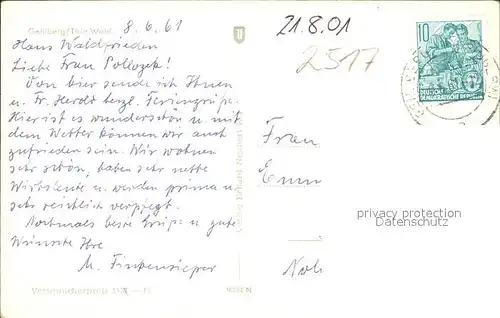 Gehlberg/Thür. Wald
8.6.61
21.8.01
2517
Haus Waldfrieden
Liebe Frau Pollozek!
Von hier sende ich Ihnen
u. Fr. Herdt herzl. Feriengrüße.
Hier ist es wunderschön u. mit
dem Wetter können wir auch
zufrieden sein. Wir wohnen
sehr schön, haben sehr nette
Wirtsleute u. werden prima u.
sehr reichlich verpflegt.
Nochmals beste Grüße u. gute
Wünsche Ihre
M. Finkensieper
10
DEUTSCHE
DEMOKRATISCHE REPUBLIK
Frau
privacy protection
Datenschutz